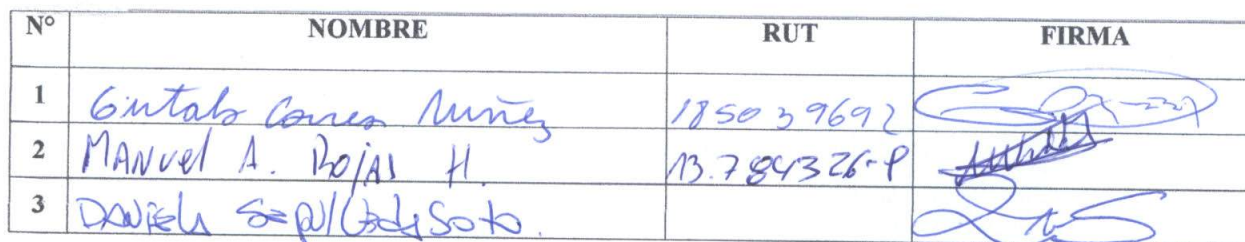 N° NOMBRE RUT FIRMA
1 Correa Nuñez 185039692
2 MANuel A. Rojas H.
3 DANiela SepulvedaSoto.